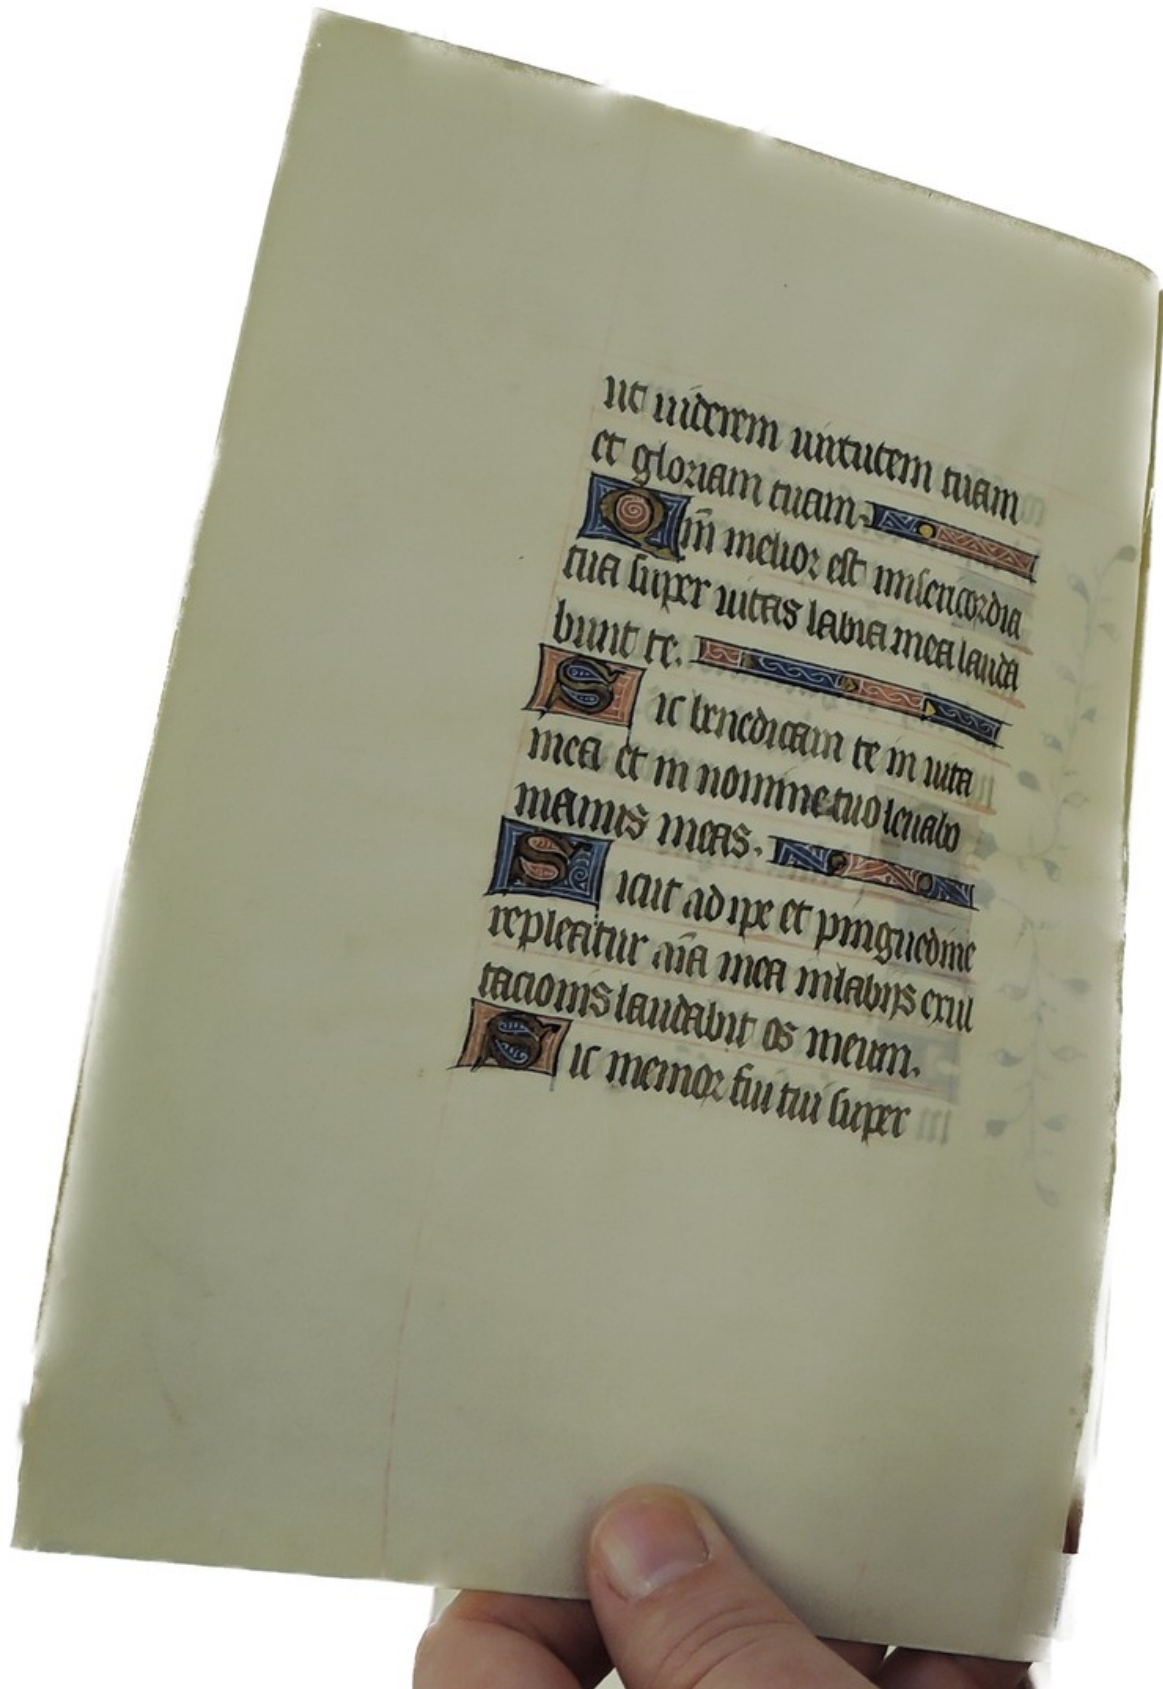 ut uiderem uirtutem tuam
et gloriam tuam.
Qm̄ melior est misericordia
tua super uitas labia mea lauda
bunt te.
Sic benedicam te in uita
mea et in nomine tuo leuabo
manus meas.
Sicut adipe et pinguedine
repleatur aīa mea in labijs exul
tacionis laudabit os meum.
Sic memor fui tui super